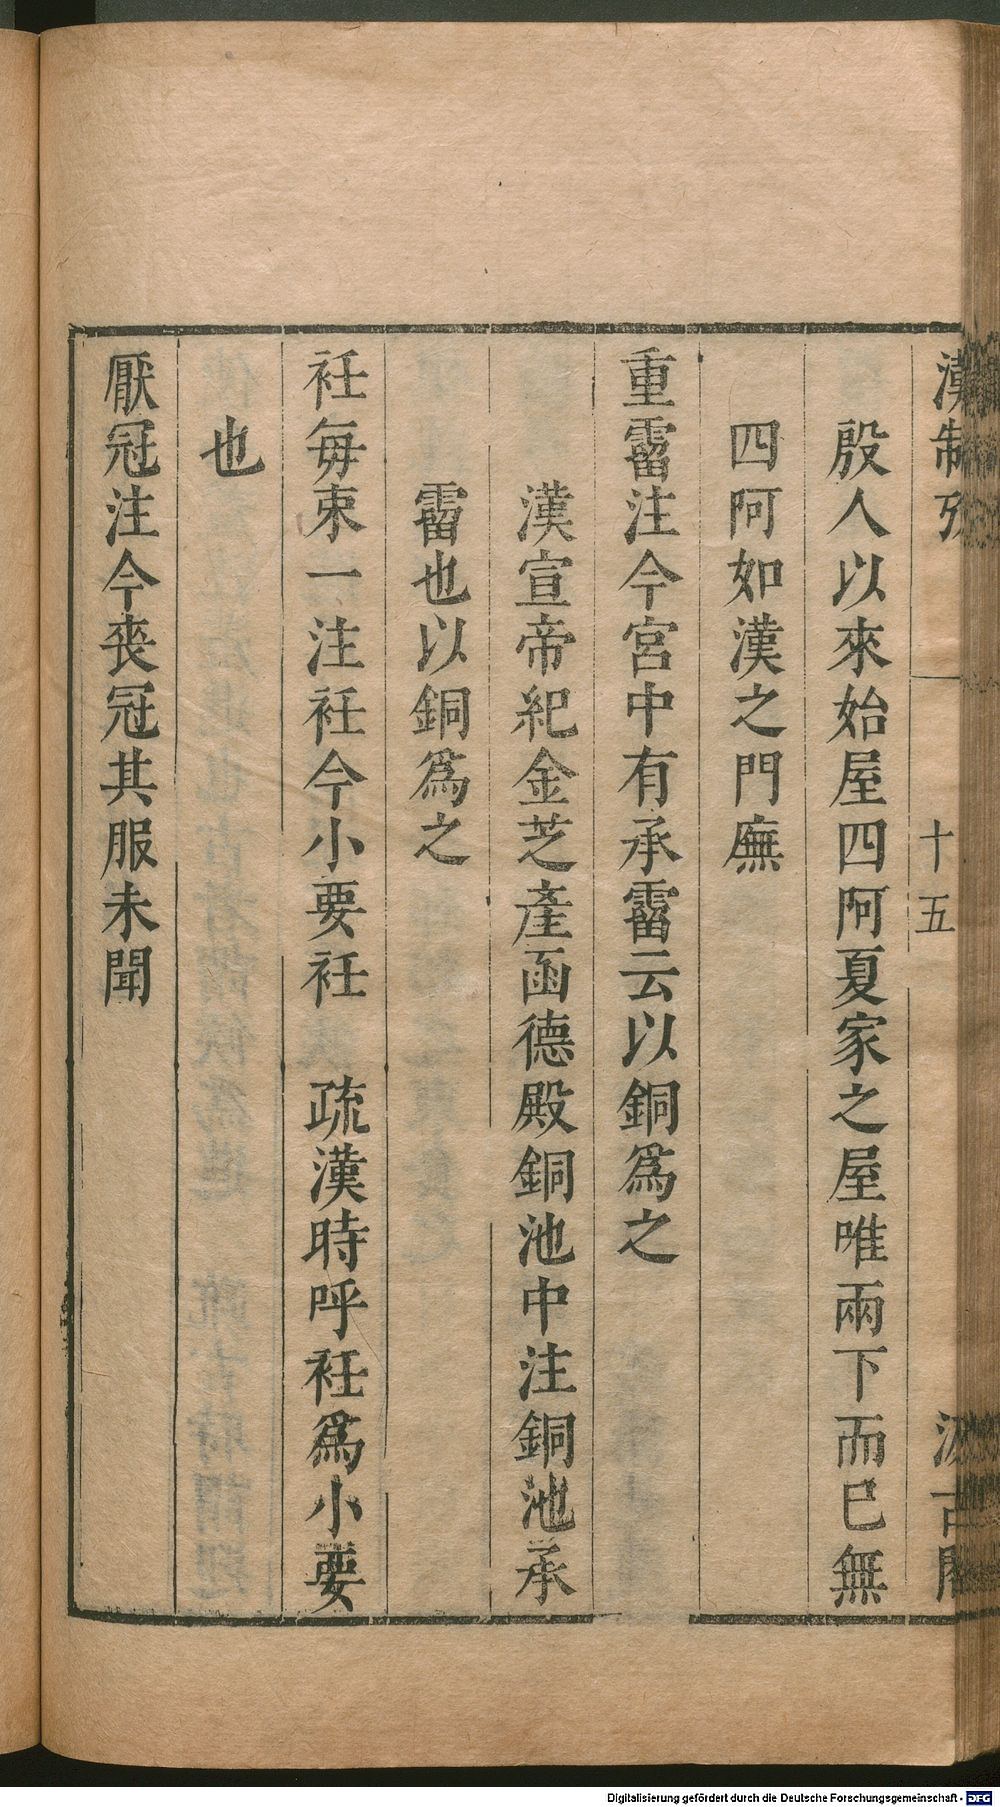 漢制攷 十五 汲古閣
殷人以來始屋四阿夏家之屋唯兩下而已無
四阿如漢之門廡
重霤注今宮中有承霤云以銅爲之
漢宣帝紀金芝產函德殿銅池中注銅池承
霤也以銅爲之
衽每束一注衽今小要衽 疏漢時呼衽爲小要
也
厭冠注今喪冠其服未聞
Digitalisierung gefördert durch die Deutsche Forschungsgemeinschaft - DFG